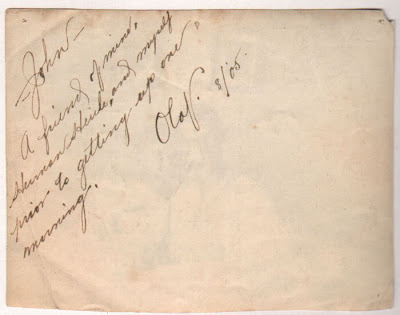 John –
A friend of mine,
Herman Heide, and myself
prior to getting up one
morning.
Olaf. 8/05.